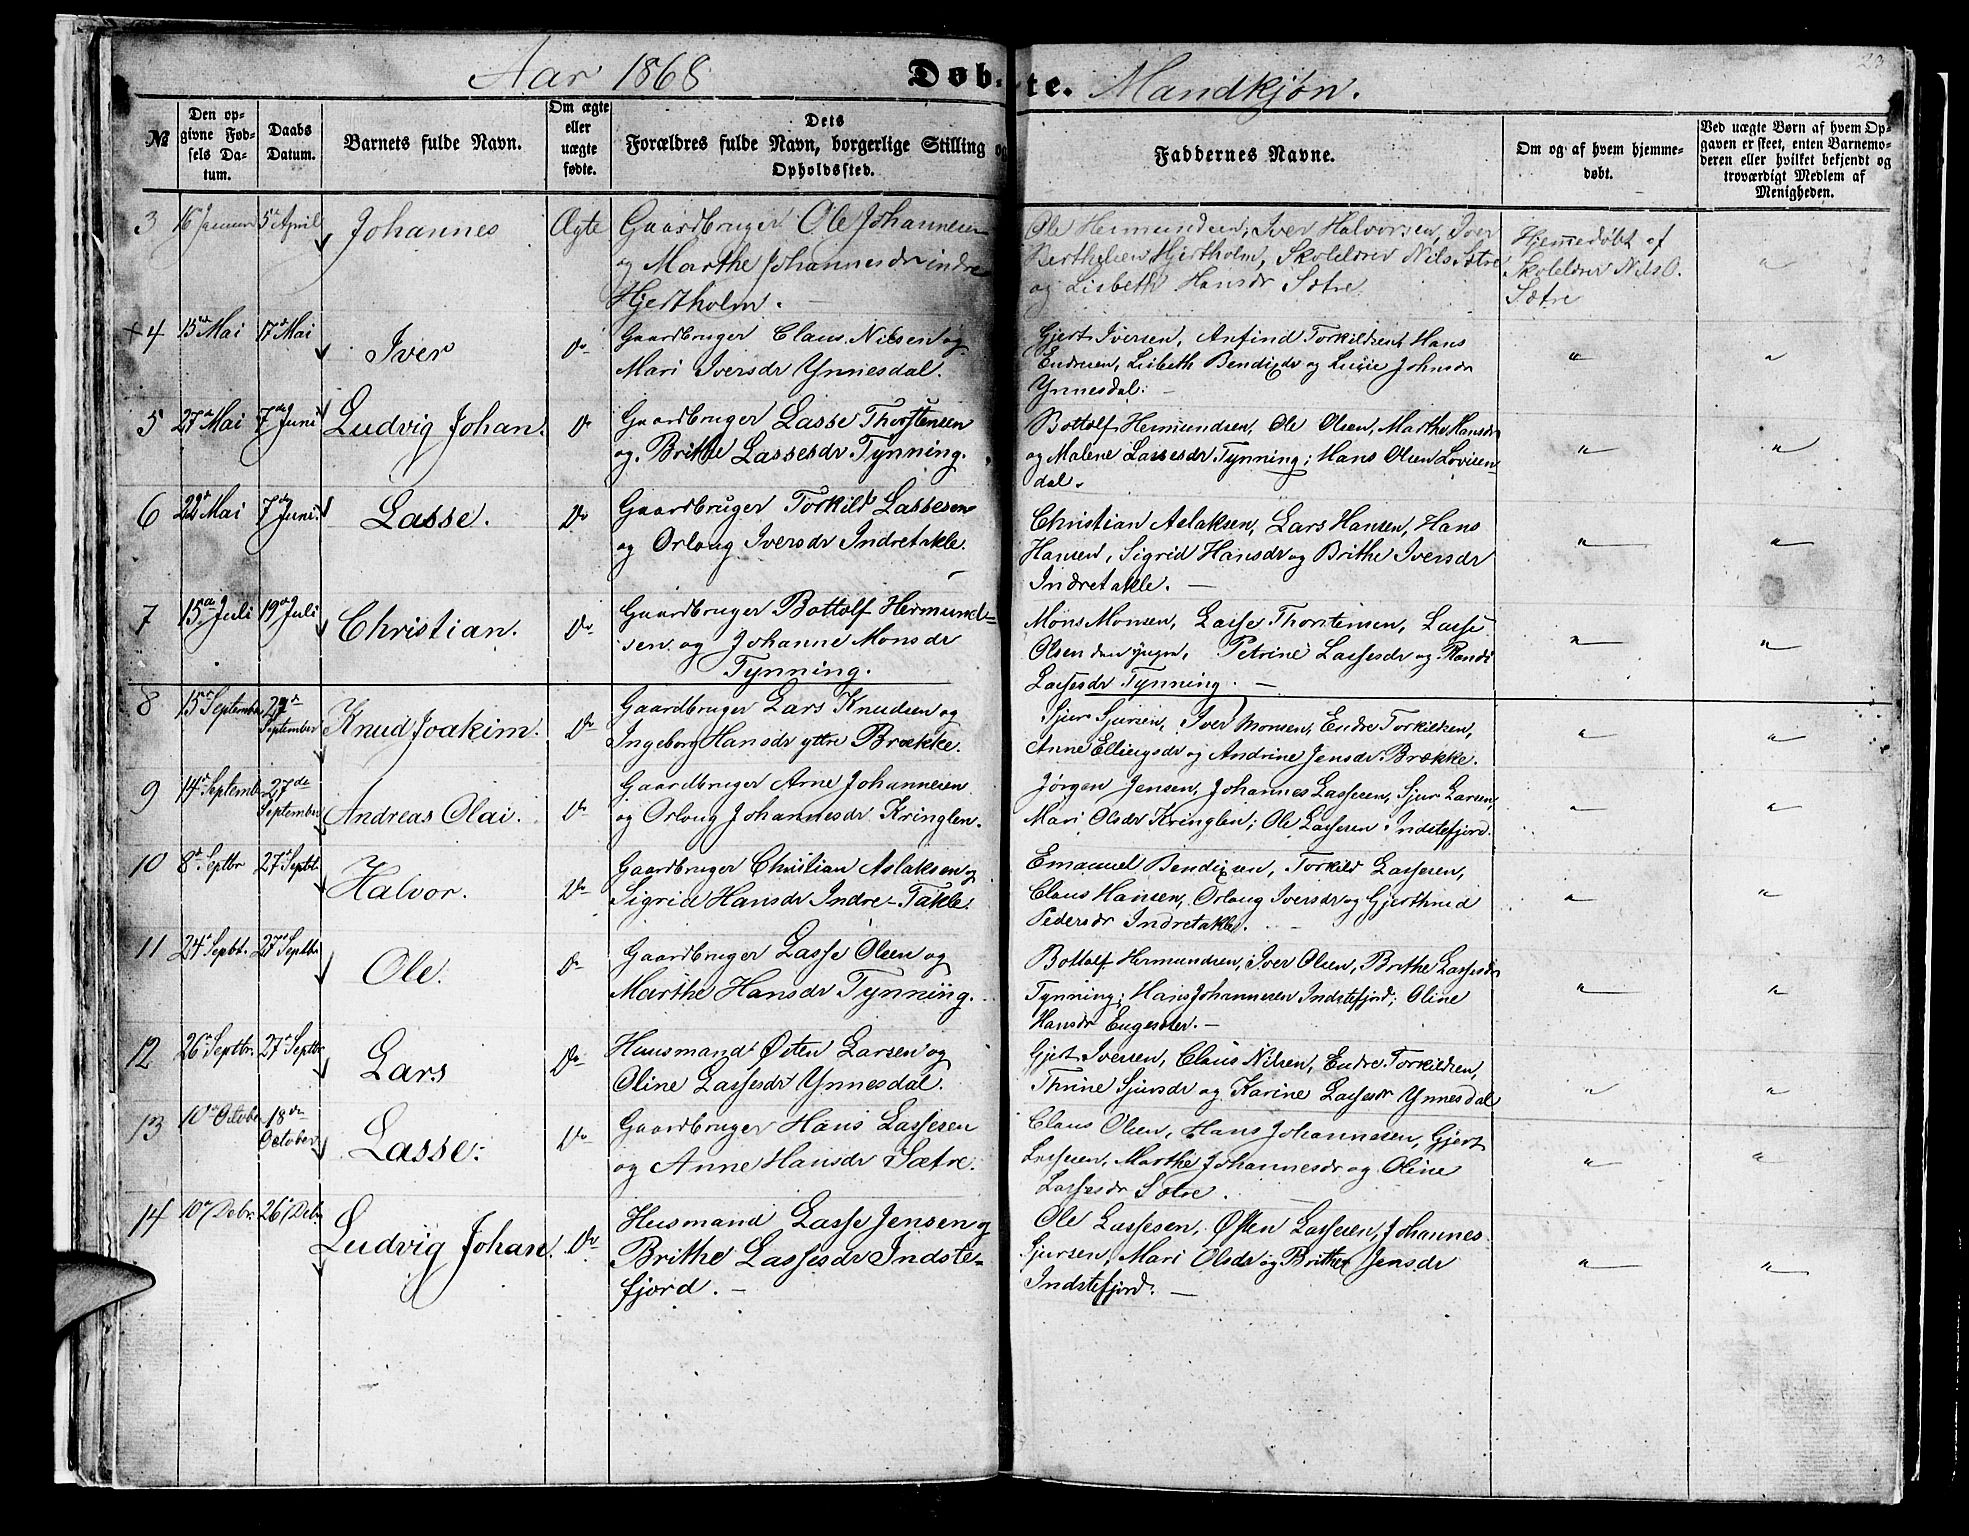 Aar 1868
Døbte. Mandkjøn.
23
№
Den opgivne Fødsels Datum.
Daabs Datum.
Barnets fulde Navn.
Om ægte eller uægte fødte.
Dets Forældres fulde Navn, borgerlige Stilling og Opholdssted.
Faddernes Navne.
Om og af hvem hjemmedøbt.
Ved uægte Børn af hvem Opgaven er skeet, enten Barnemoderen eller hvilket bekjendt og troværdigt Medlem af Menigheden.
3 16 Januar 5te April Johannes Ægte
Gaardbruger Ole Johannesen
og Marthe Johannesdr indre
Hjertholm.
Ole Hermundsen, Iver Halvorsen, Iver
Berthelsen Hjertholm, Skolelærer Nils Sætre
og Lisbeth Hansdr Sætre
Hjemmedøbt af
Skolelærer Nils O.
Sætre
"
+4 15de Mai 17de Mai Iver Do
Gaardbruger Claus Nilsen og
Mari Iversdr Ynnesdal.
Gjert Iversen, Anfind Torkildsen, Hans
Endresen, Lisbeth Bendixdr og Lucie Johnsdr
Ynnesdal.
" "
5 27de Mai 7de Juni Ludvig Johan. Do
Gaardbruger Lasse Thorstensen
og Brithe Lassesdr Tynning.
Bottolf Hermundsen, Ole Olsen, Marthe Hansdr
og Malene Lassesdr Tynning; Hans Olsen Lovisen-
dal.
" "
6 22de Mai 7de Juni. Lasse. Do
Gaardbruger Torkild Lassesen
og Orloug Iversdr Indretakle.
Christian Aslaksen, Lars Hansen, Hans
Hansen, Sigrid Hansdr og Brithe Iversdr
Indretakle. —
" "
7 15de Juli 19de Juli Christian. Do
Gaardbruger Bottolf Hermund-
sen og Johanne Monsdr
Tynning.
Mons Monsen, Lasse Thorstensen, Lasse
Olsen den yngre, Petrine Lassesdr og Randi
Lassesdr Tynning. —
" "
8 15de September 27de September Knud Joakim. Do
Gaardbruger Lars Knudsen og
Ingeborg Hansdr ytre Brække.
Sjur Sjursen, Iver Monsen, Endre Torkildsen,
Anne Ellingsdr og Andrine Jensdr Brække.
" "
9 14de Septemb. 27de September Andreas Olai. Do
Gaardbruger Arne Johannesen
og Orloug Johannesdr Kringlen.
Jørgen Jensen, Johannes Lassesen, Sjur Larsen,
Mari Olsdr Kringlen; Ole Lassesen Indstefjord.
" "
10 8de Septbr 27de Septbr. Halvor. Do
Gaardbruger Christian Aslaksen og
Sigrid Hansdr Indre-Takle.
Emanuel Bendixsen, Torkild Lassesen,
Claus Hansen, Orloug Iversdr og Gjerthrud
Pedersdr Indretakle.
" "
11 24de Septbr. 27de Septbr Ole. Do
Gaardbruger Lasse Olsen og
Marthe Hansdr Tynning.
Bottolf Hermundsen, Iver Olsen, Brithe Lassesdr
Tynning; Hans Johannesen Indstefjord; Oline
Hansdr Engesæter. —
" "
12 26de Septbr. 27de Septbr Lars Do
Huusmand Østen Larsen og
Oline Lassesdr Ynnesdal.
Gjert Iversen, Claus Nilsen, Endre Torkildsen,
Thrine Sjursdr og Karine Lassesdr Ynnesdal
" "
13 10de October 18de October Lasse. Do
Gaardbruger Hans Lassesen
og Anne Hansdr Sætre.
Claus Olsen, Hans Johannesen, Gjert
Lassesen, Marthe Johannesdr og Oline
Lassesdr Sætre.
" "
14 10de Debr. 26de Debr Ludvig Johan. Do
Husmand Lasse Jensen og
Brithe Lassesdr Indste-
fjord. —
Ole Lassesen, Østen Lassesen, Johannes
Sjursen, Mari Olsdr og Brithe Jensdr
Indstefjord. —
" "